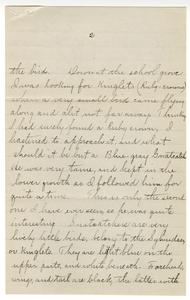 2
the bird. Down at the school grove
I was looking for Kinglets (Ruby-crowned)
when a very small bird came flying
along and alit not far away. Thinking
I had surely found a Ruby crown, I
hastened to approach it, and what
should it be but a Blue-gray Gnatcatcher
He was very tame, and kept in the
lower growth as I followed him for
quite a time. This was only the second
one I have ever seen so he was quite
interesting. Gnatcatchers are very
lively little birds, belong to the Sylviidae,
or Kinglets. They are light blue on the
upper parts, and white beneath. Forehead,
wings, and tail are black, the latter with